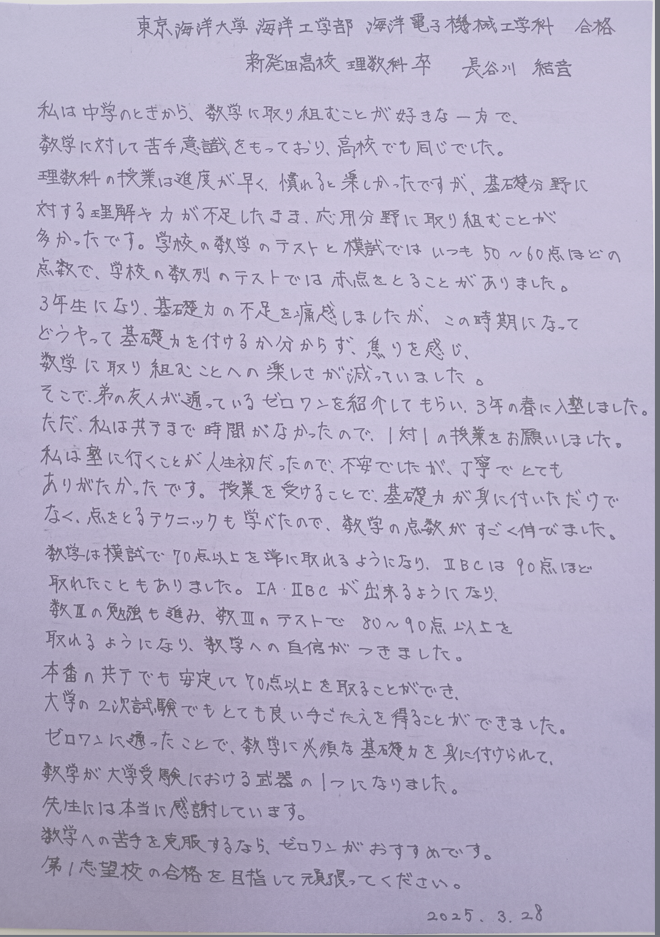 東京海洋大学 海洋工学部 海洋電子機械工学科 合格
新発田高校 理数科卒 長谷川 結音
私は中学のときから、数学に取り組むことが好きな一方で、
数学に対して苦手意識をもっており、高校でも同じでした。
理数科の授業は進度が早く、慣れると楽しかったですが、基礎分野に
対する理解や力が不足したまま、応用分野に取り組むことが
多かったです。学校の数学のテストと模試ではいつも50〜60点ほどの
点数で、学校の数列のテストでは赤点をとることがありました。
3年生になり、基礎力の不足を痛感しましたが、この時期になって
どうやって基礎力を付けるか分からず、焦りを感じ、
数学に取り組むことへの楽しさが減っていました。
そこで、弟の友人が通っているゼロワンを紹介してもらい、3年の春に入塾しました。
ただ、私は共テまで時間がなかったので、1対1の授業をお願いしました。
私は塾に行くことが人生初だったので、不安でしたが、丁寧でとても
ありがたかったです。授業を受けることで、基礎力が身に付いただけで
なく、点をとるテクニックも学べたので、数学の点数がすごく伸びました。
数学は模試で70点以上を常に取れるようになり、ⅡBCは90点ほど
取れたこともありました。ⅠA・ⅡBCが出来るようになり、
数Ⅲの勉強も進み、数Ⅲのテストで80〜90点以上を
取れるようになり、数学への自信がつきました。
本番の共テでも安定して70点以上を取ることができ、
大学の2次試験でもとても良い手ごたえを得ることができました。
ゼロワンに通ったことで、数学に必須な基礎力を身に付けられて、
数学が大学受験における武器の1つになりました。
先生には本当に感謝しています。
数学への苦手を克服するなら、ゼロワンがおすすめです。
第1志望校の合格を目指して頑張ってください。
2025.3.28